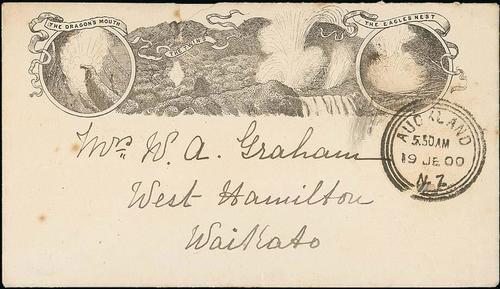 THE DRAGON'S MOUTH
THE EAGLES NEST
Mrs W. A. Graham
West Hamilton
Waikato
AUCKLAND
5.30AM
19 JE 00
N.Z